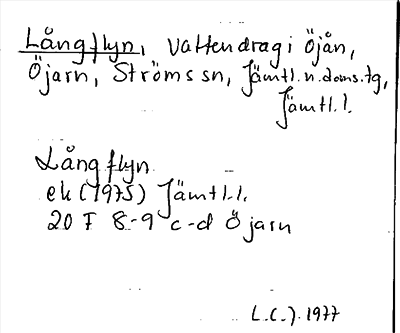 Långflyn, vattendrag i Öjån,
Öjarn, Ströms sn, Jämtl. n. doms. tg,
Jämtl. l.
Långflyn
ek (1975) Jämtl. l.
20 F 8-9 c-d Öjarn
L.C.J. 1977